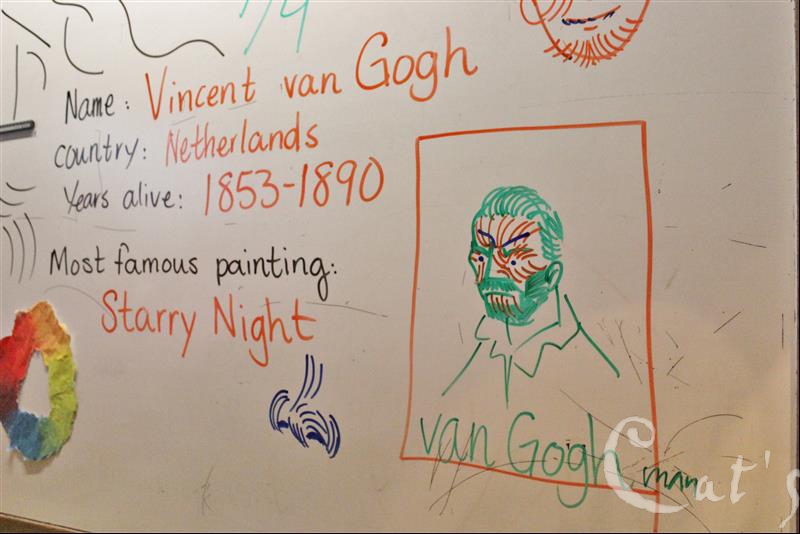 Name: Vincent van Gogh
country: Netherlands
Years alive: 1853-1890
Most famous painting:
Starry Night
van Gogh
man
Cat's